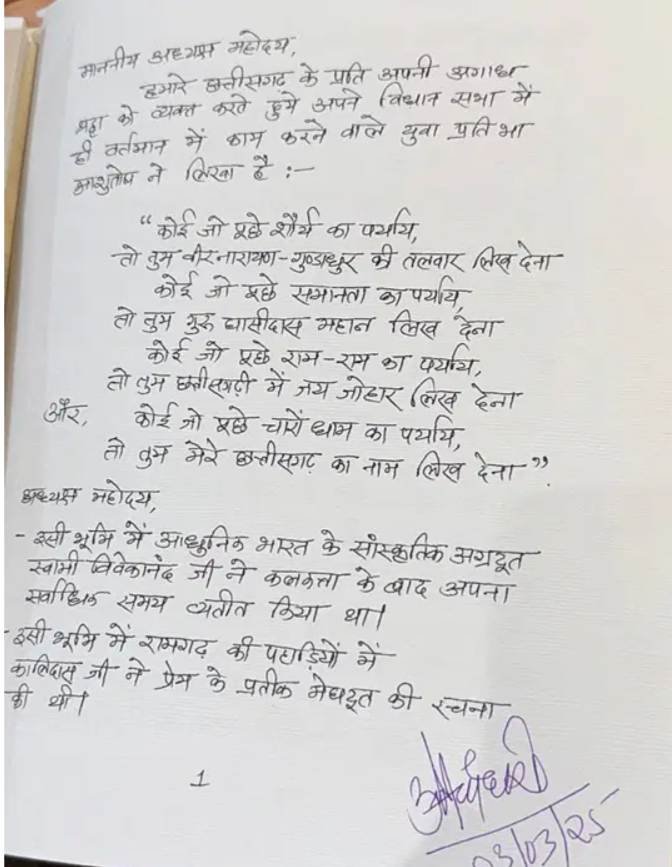 माननीय अध्यक्ष महोदय,
हमारे छत्तीसगढ़ के प्रति अपनी अगाध
श्रद्धा को व्यक्त करते हुये अपने विधान सभा में
ही वर्तमान में काम करने वाले युवा प्रतिभा
आशुतोष ने लिखा है :—
“कोई जो पूछे शौर्य का पर्याय,
तो तुम वीरनारायण-गुण्डाधुर की तलवार लिख देना
कोई जो पूछे समानता का पर्याय,
तो तुम गुरु घासीदास महान लिख देना
कोई जो पूछे राम-राम का पर्याय,
तो तुम छत्तीसगढ़ी में जय जोहार लिख देना
और, कोई जो पूछे चारों धाम का पर्याय,
तो तुम मेरे छत्तीसगढ़ का नाम लिख देना”.
अध्यक्ष महोदय,
- इसी भूमि में आधुनिक भारत के सांस्कृतिक अग्रदूत
स्वामी विवेकानंद जी ने कलकत्ता के बाद अपना
सर्वाधिक समय व्यतीत किया था।
- इसी भूमि में रामगढ़ की पहाड़ियों में
कालिदास जी ने प्रेम के प्रतीक मेघदूत की रचना
की थी।
1
03/03/25